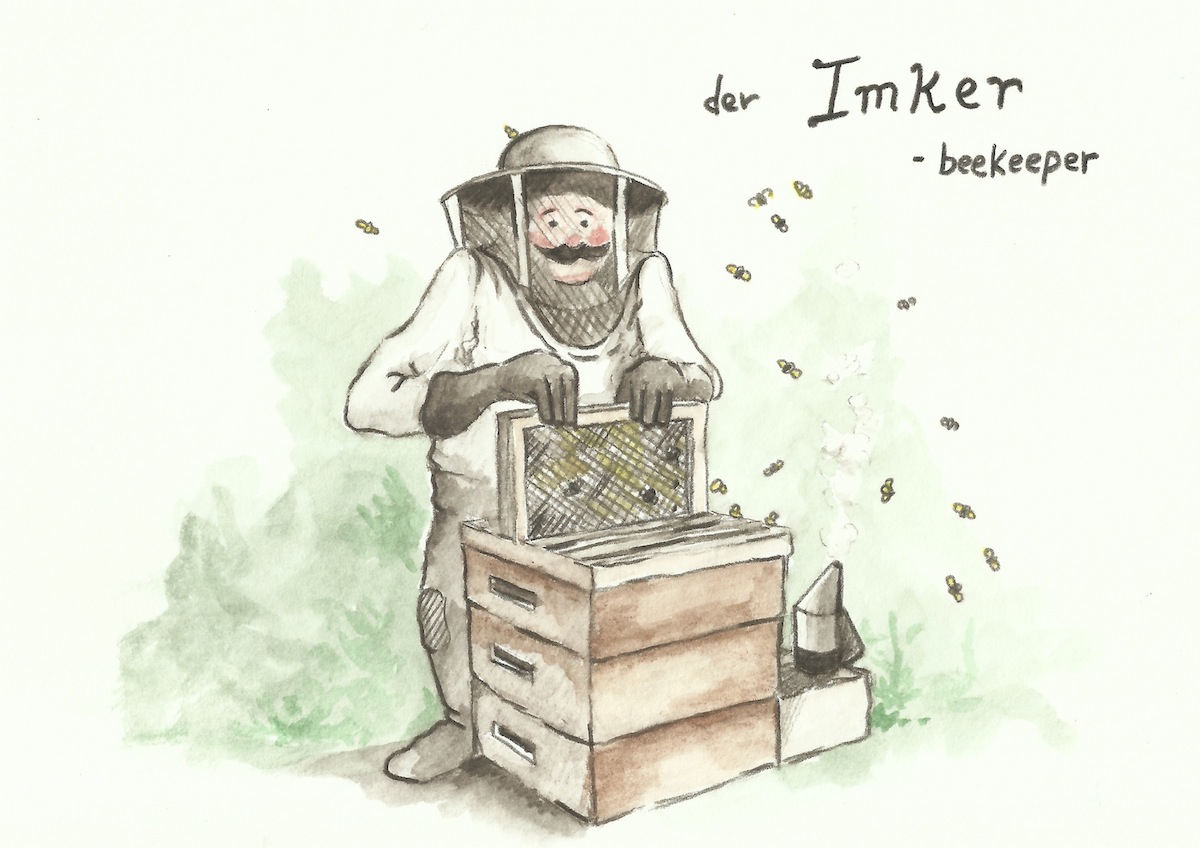 der Imker
- beekeeper